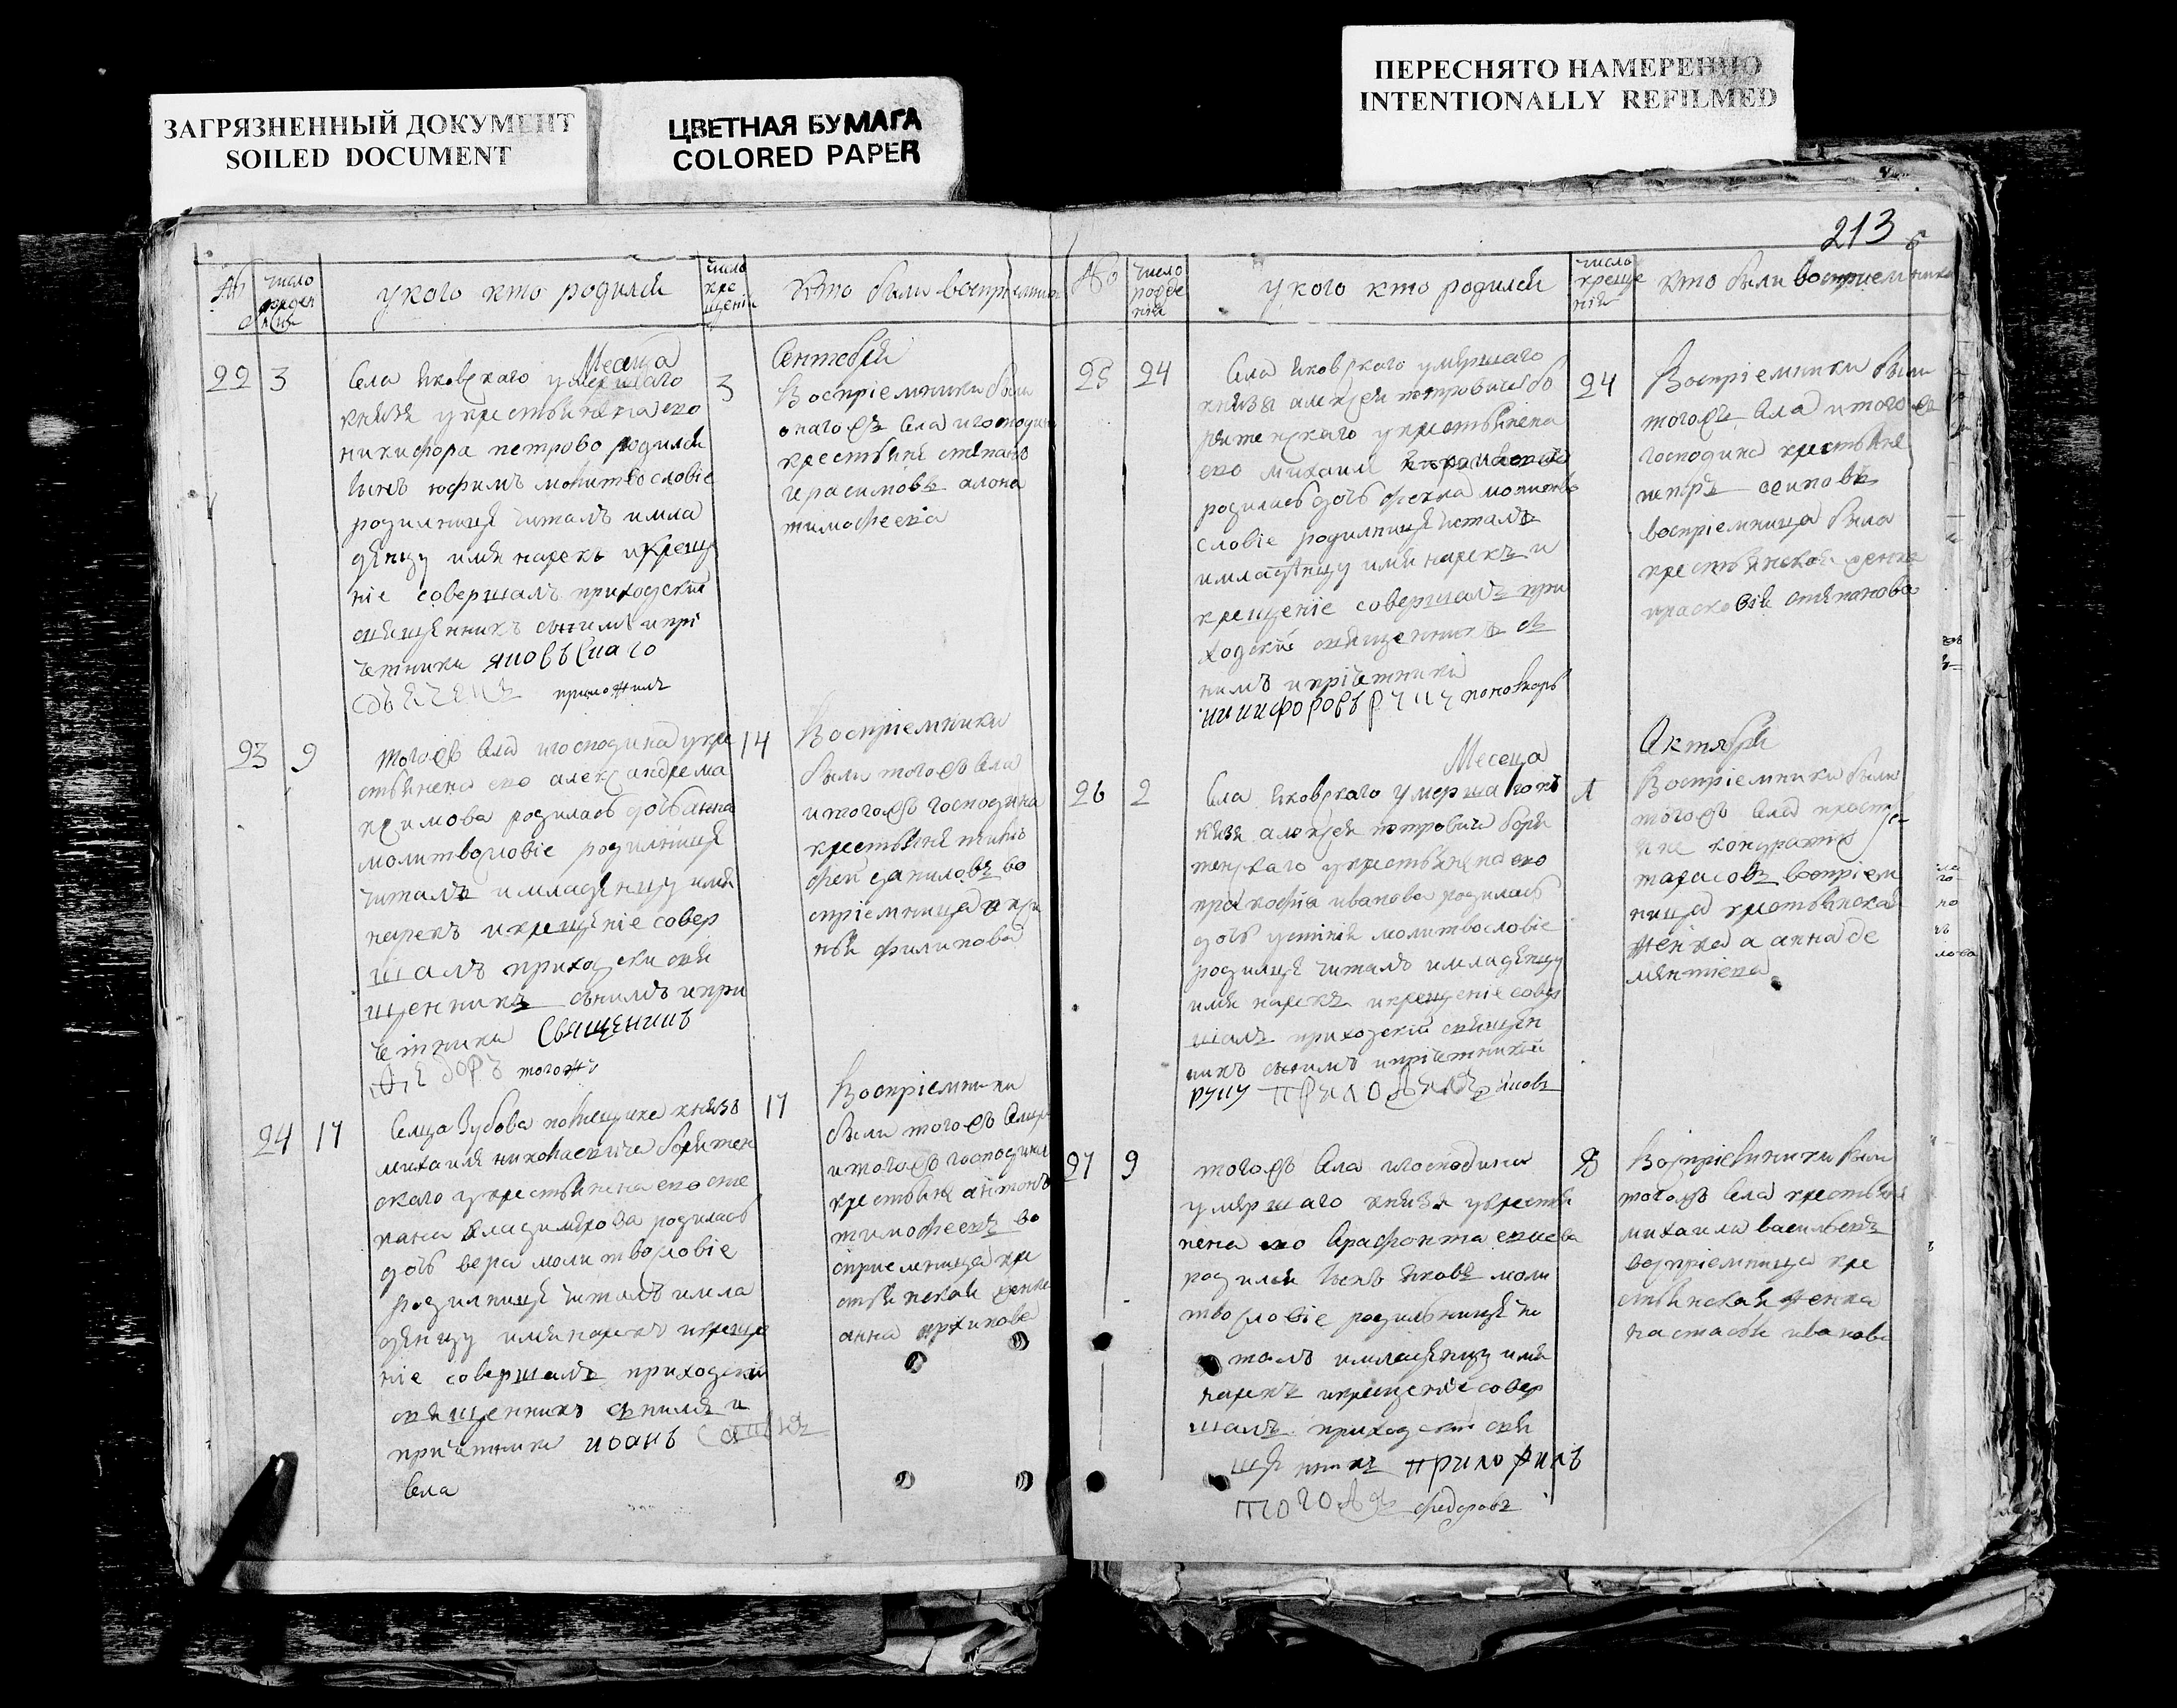 ЗАГРЯЗНЕННЫЙ ДОКУМЕНТ
SOILED DOCUMENT
ЦВЕТНАЯ БУМАГА
COLORED PAPER
ПЕРЕСНЯТО НАМЕРЕННО
INTENTIONALLY REFILMED
213
число
у кого кто родился
кто были восприемники
Месяца Сентября
22 3
села яковского умершаго
князя у крестьянина ево
никифора петрово родился
сынъ юфимъ молитвословіе
родильницѣ читалъ и мла
дѣнцу имя нарекъ и креще
ніе совершалъ приходскій
священникъ снимъ и при
четники яковъскаго
приложилъ
3
Восприемники были
онагожъ села и господина
крестьяне стѣпанъ
герасимовъ алона
тимофеева
23 9
тогожъ села и господина укре
стьянена ево александра ма
ксимова родилась дочь анна
молитвословіе родильнице
читалъ и младенцу имя
нарекъ и крещеніе совер
шалъ приходски свя
щенникъ снимъ и при
четники Священникъ
тогожъ
14
Восприемники
были тогожъ села
и тогожъ господина
крестьяне тимо
фей даниловъ во
сприемница акси
нья филипова
24 17
селца Зубова помещика князя
михаиля николаевича боряти
скаго у крестьянена ево сте
пана владимерова родилась
дочь вера молитвословіе
родилнице читалъ и мла
денцу имя нарекъ и креще
ніе совершалъ приходски
священникъ снимъ и
причетники иоанъ
села
17
Восприемники
были тогожъ селца
и тогожъ господина
крестьяне антонъ
тимофеевъ во
сприемница кре
стьянская женка
анна архипова
число рожде нія
у кого кто родился
число креще нія
кто были восприемники
25 24
села яковскаго умершаго
князя алексея петровича бо
рятенскаго укрестьянена
ево михаил
родилась дочь фекла молитво
словіе родилнице читалъ
и младенцу имя нарекъ и
крещеніе совершалъ при
ходскій священникъ с
нимъ и причетники
никифоровъ руку пономарь
24
Восприемники были
тогожъ села и тогожъ
господина крестьяне
петръ осиповъ
восприемница была
крестьянская женка
прасковья стѣпанова
Месеца Октября
26 2
села яковскаго умершагожъ
князя алексея петровича боря
тенскаго укрестьянена ево
пракофія иванова родилась
дочь устинія молитвословіе
родилце читалъ и младенцу
имя нарекъ и крещеніе совер
шалъ приходскій священ
никъ снимъ и причетники
руку приложилъ яковъ
Восприемники были
тогожъ села кресть
яне кондратъ
тарасовъ восприем
ница крестьянска
женка анна де
ментіева
27 9
тогожъ села и господина
умершаго князя укрестья
нена ево
родился сынъ яковъ моли
твословіе родильнице чи
талъ и младенцу имя
нарекъ и крещеніе совер
шалъ приходски свя
щенникъ приложилъ
тогожъ федоровъ
Восприемники были
тогожъ села крестьяне
михаила васильевъ
восприемница кре
стьянская женка
настасья иванова